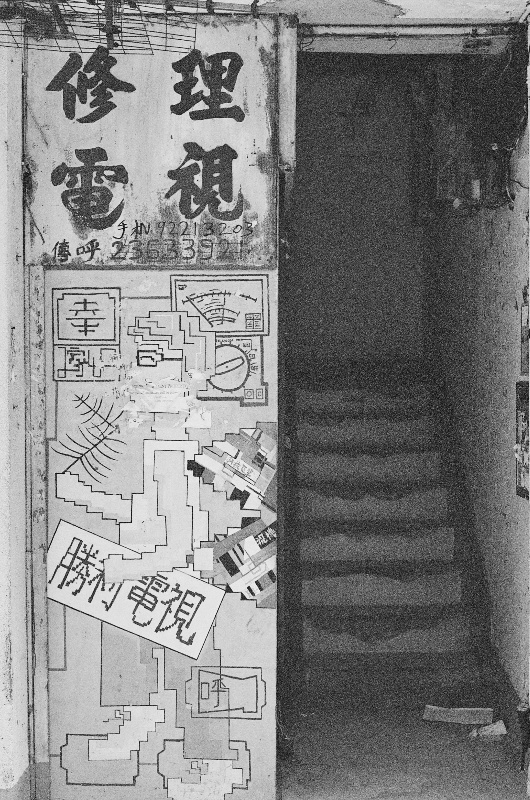 修理
電視
手机 92213203
傳呼 23633921
幸
勝利電視